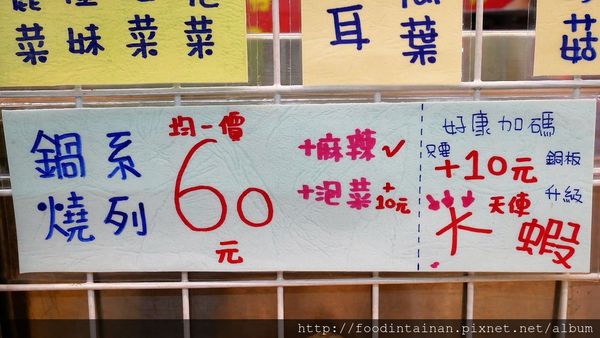 菜 妹 菜 菜
耳 葉
菇
鍋系
燒列
均一價
60
元
+麻辣✓
+泡菜+10元
好康加碼
只要
+10元
銅板
升級
天使
米蝦
http://foodintainan.pixnet.net/album